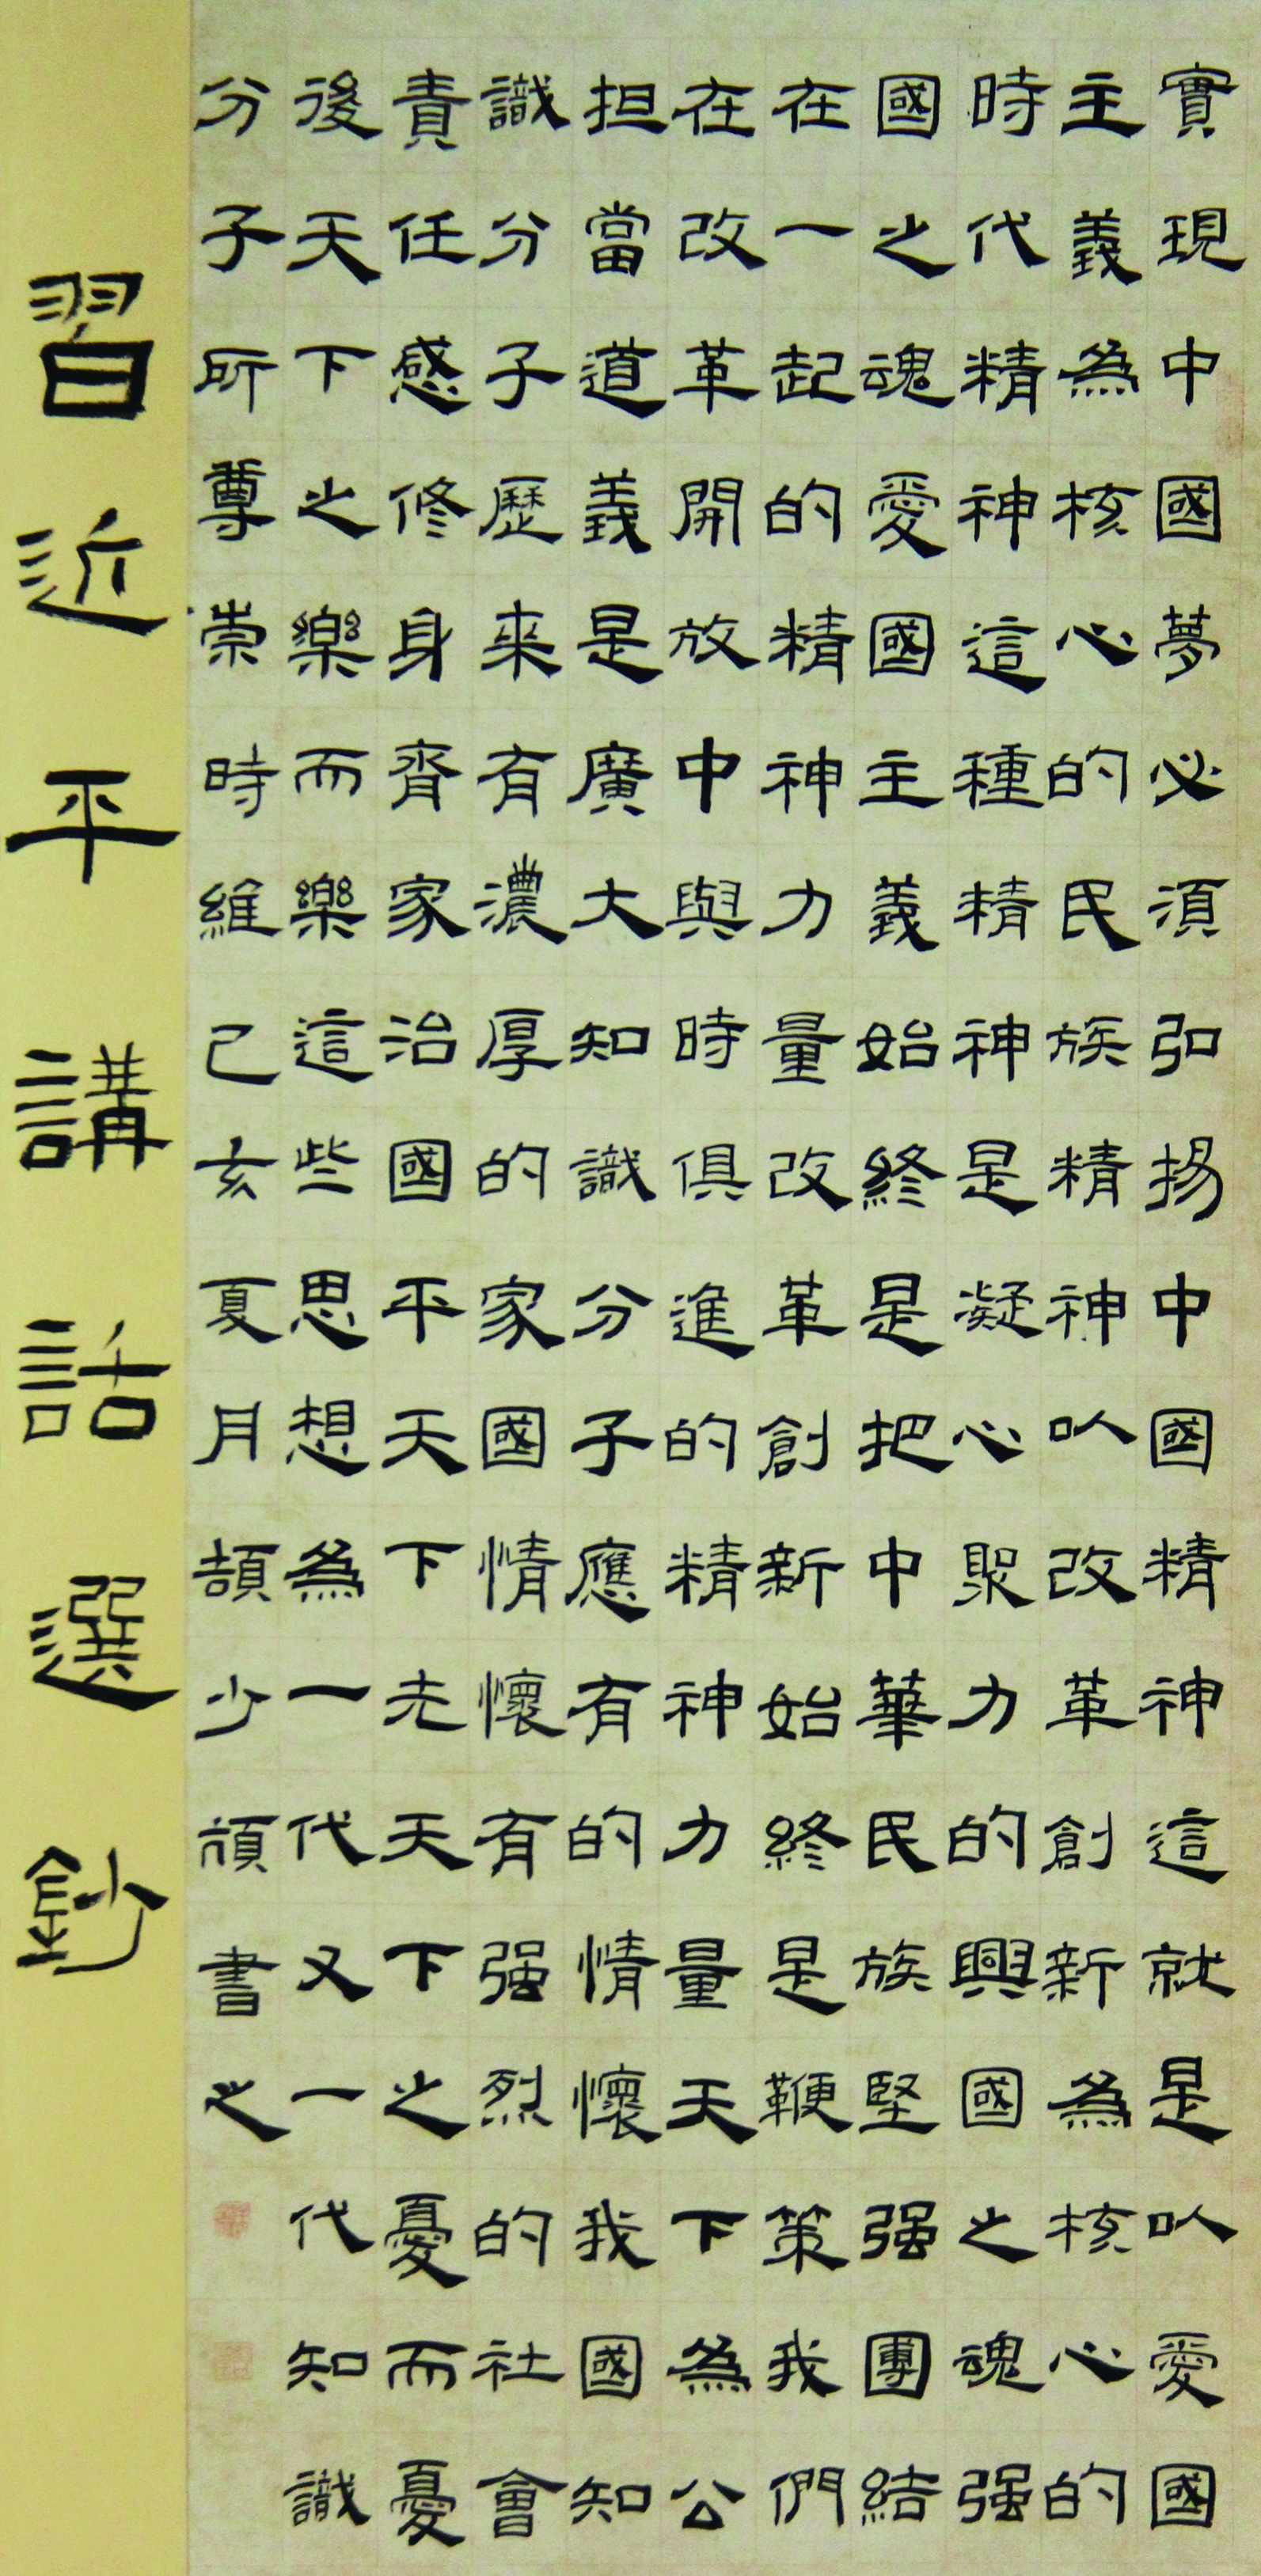 實現中國夢必須弘揚中國精神這就是以愛國
主義為核心的民族精神以改革創新為核心的
時代精神這種精神是凝心聚力的興國之魂强
國之魂愛國主義始終是把中華民族堅强團結
在一起的精神力量改革創新始終是鞭策我們
在改革開放中與時俱進的精神力量天下為公
担當道義是廣大知識分子應有的情懷我國知
識分子歷来有濃厚的家國情懷有强烈的社會
責任感修身齊家治國平天下先天下之憂而憂
後天下之樂而樂這些思想為一代又一代知識
分子所尊崇時維己亥夏月頡少書之
習近平講話選鈔